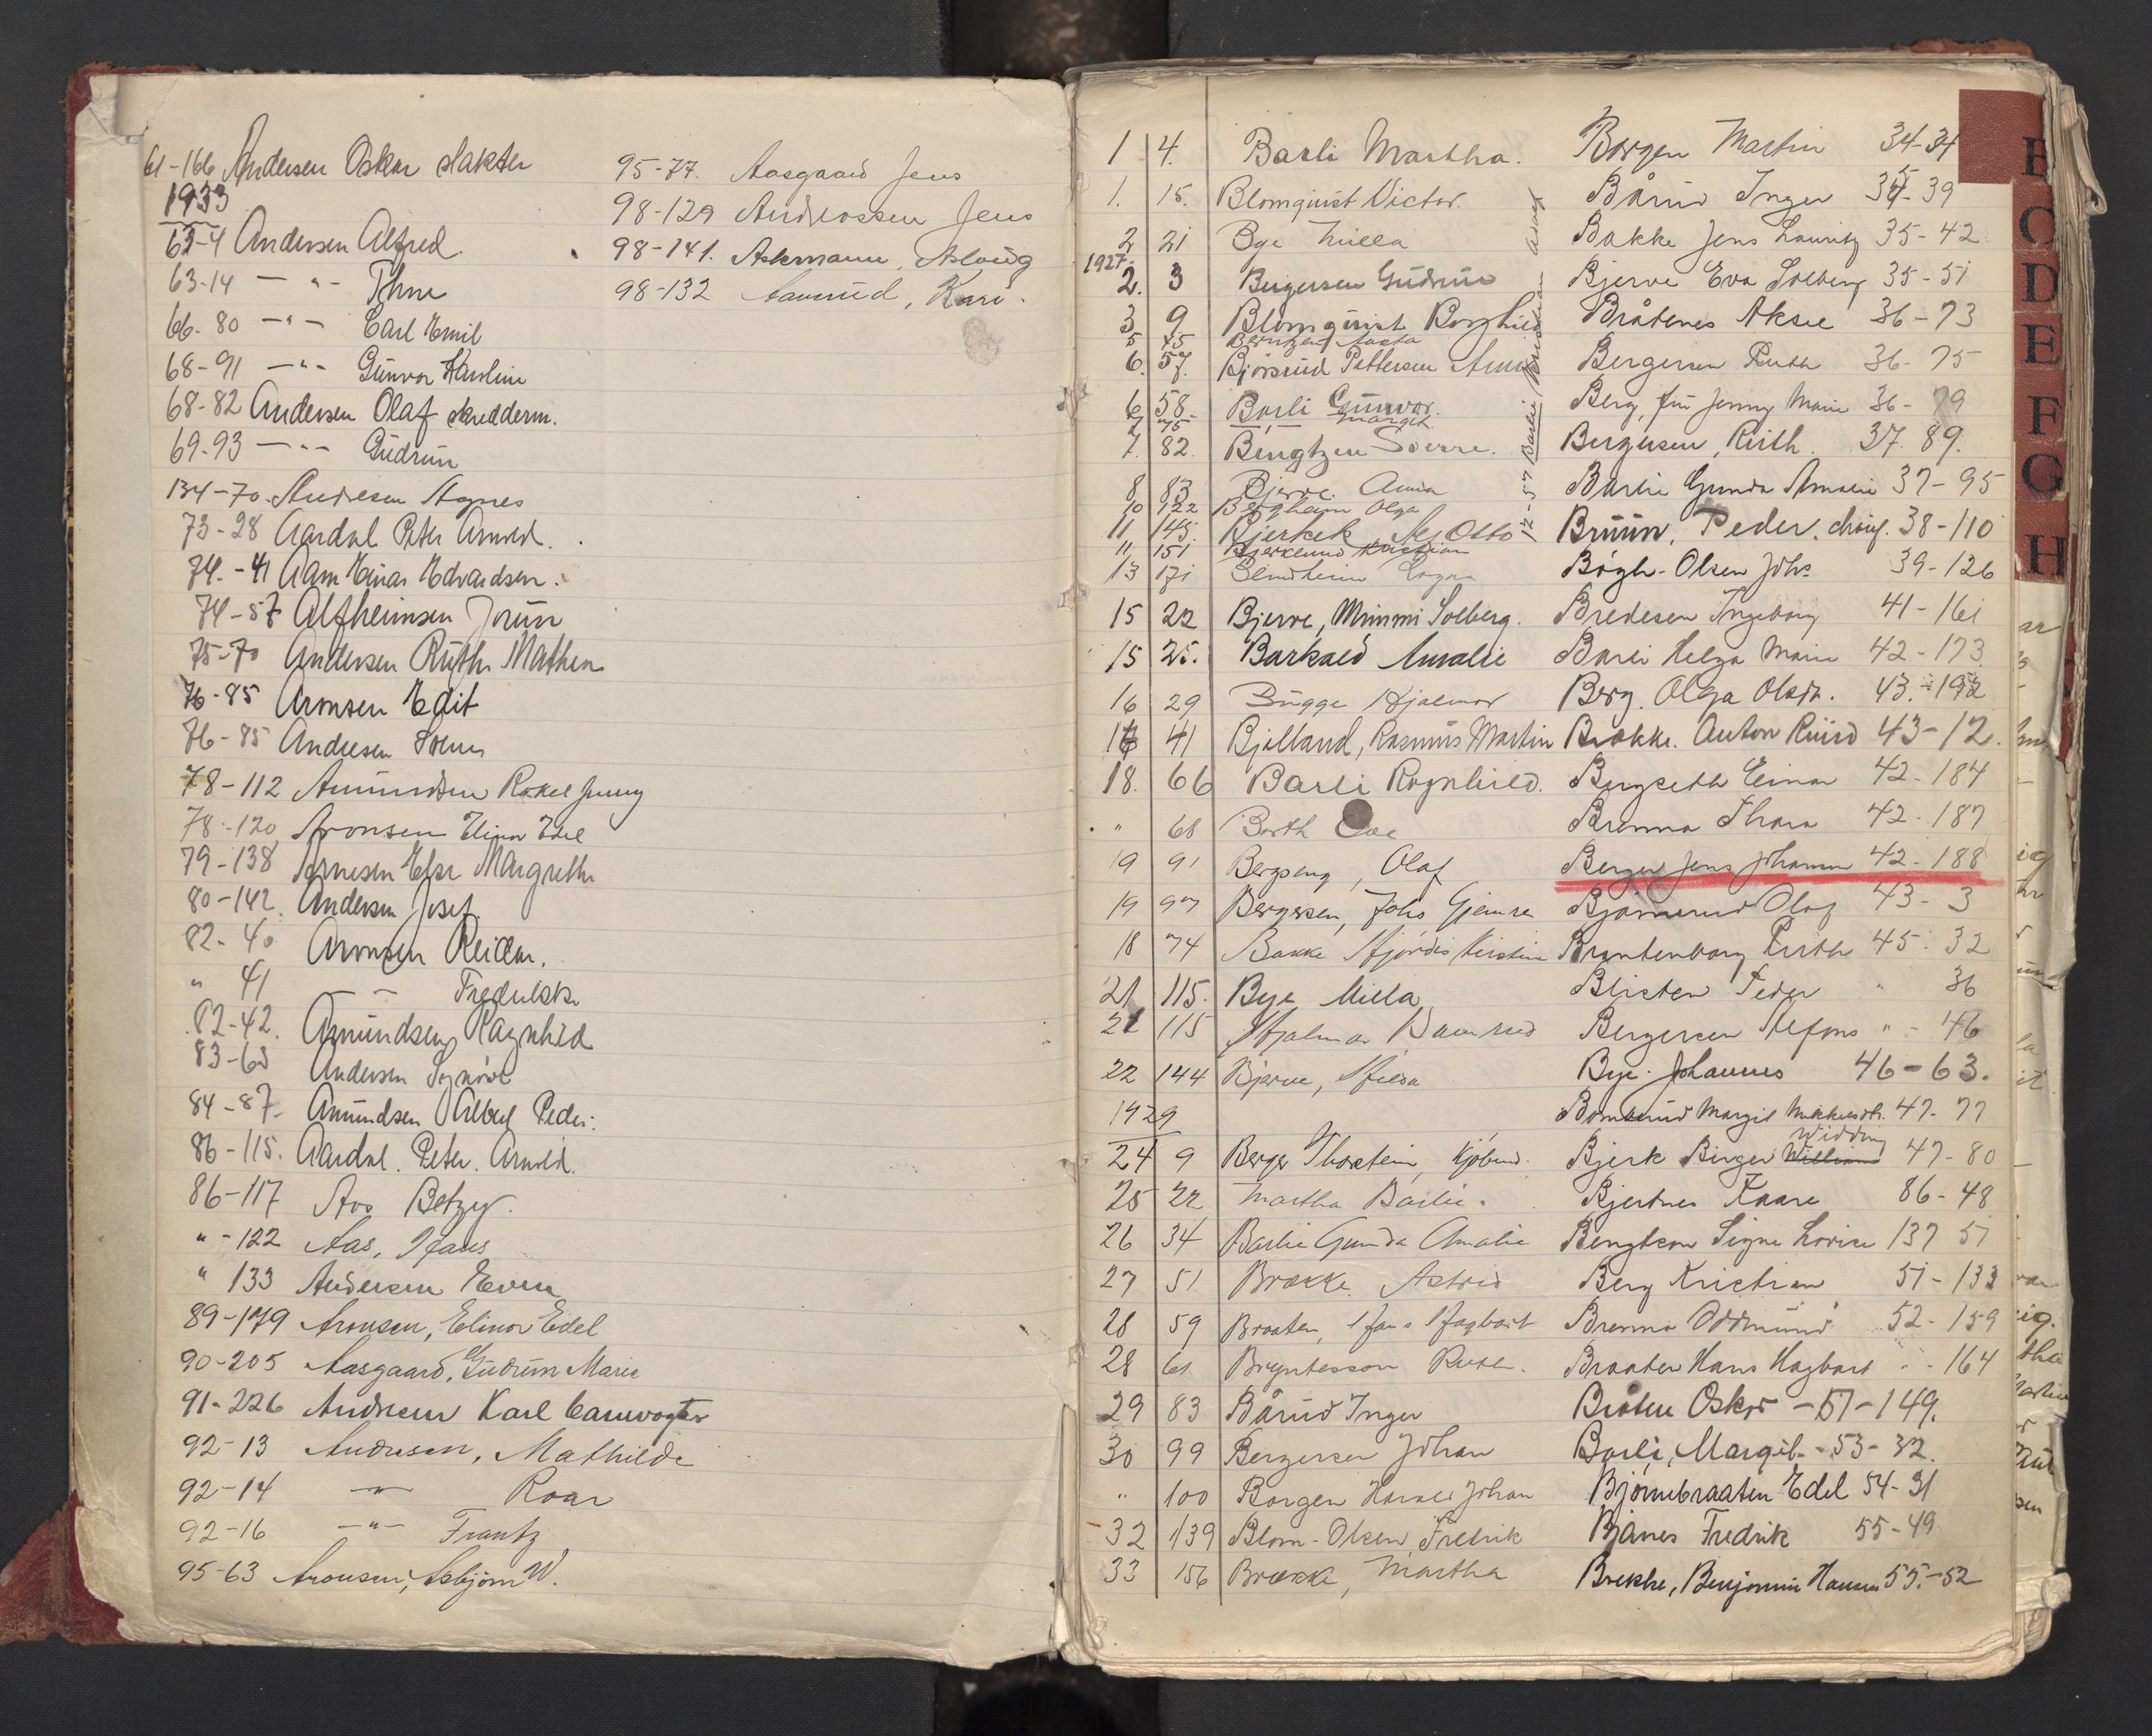 61-166 Andersen Oskar slakter
1933
63-4 Andersen Alfred.
63-14 — " — Thine
66-80 — " — Carl Emil
68-91 — " — Gunvor Karoline
68-82 Andersen Olaf skredderm.
69-93 — " — Gudrun
134-70. Andresen Agnes
73-28 Aardal Peter Arnold.
74.-41 Aam Einar Edvardsen.
74-57 Alfheimsen Jorun
75-70 Andersen Ruth Mathea
76-85 Aronsen Edit
76-85 Andresen
78-112 Amundsen Rakel Jenny
78-120 Aronsen Elinor Edel
79-138 Arnesen Else Margrethe
80-142. Andersen Josef.
82-40 Aronsen Reidar.
" 41 — — Fredrikke
82-42. Amundsen Ragnhild
83-63 Andersen Synöve
84-87- Amundsen Albert Peder.
86-115. Aardal. Peter. Arnold.
86-117 Aas Betzy.
" -122 Aas, Hans
" 133 Andersen Even
89-179 Aronsen, Elinor Edel
90-205 Aasgaard, Gudrun Marie
91-226 Andresen Karl banevogter
92-13 Andresen, Mathilde
92-14 — " — Roar
92-16 — " — Frantz
95-63 Aronsen, Asbjørn W.
95-77. Aasgaard Jens
98-129 Andreassen Jens
98-141. Askmann, Aslaug
98-132 Aamrud, Kari.
1 4. Barli Martha.
1. 15. Blomquist Victor.
2 21 Bye Milla
1927.
2. 3 Bergersen Gudrun
3 9 Blomquist Borghild
5 45 Berntzen Aasta
6. 57. Bjørsrud Pettersen Anna
6 58 Barli Gunvor.
7 75 — " — Margit
7. 82 Bengtzen Sverre.
8 83 Bjerve Anna
10 122 Bergheim Olga
11 145. Bjerkek, Otto
11 151 Bjerkelund Kristian
13 171 Blindheim
15 22 Bjerve, Mimmi Solberg.
15 25. Barkald Amalie
16 29 Bugge Hjalmar
16 41 Bjelland, Rasmus Martin
18. 66 Barli Ragnhild.
" 68 Barth
19 91 Bergseng, Olaf
19 97 Bergersen, Johs
18 74 Bakke Hjördis Kirstine
21 115. Bye Milla
21 115 Hjalmar Baamrud
22 144 Bjerve, Hilda
1929
24 9 Berge Thorstein, kjøbmd.
25 22 Martha Barlie.
26 34 Barlie Gunda Amalie
27 51 Brække Astrid
28 59 Braaten, Hans Hagbart
28 61 Bryntesson Ruth.
29 83 Bårud Inger
30 99 Bergersen Johan
" 100 Borgen Harald Johan
32 139 Blom-Olsen, Fredrik
33 156 Brække, Martha
12-57 Barlie, Kristian
Borgen Martin 34-34
Bårud Inger 35-39
Bakke Jens Lauritz 35-42
Bjerve Eva Solberg 35-51
Bråtenes Aksel 36-73
Bergersen Ruth 36-75
Berg, fru Jenny Marie 36-79
Bergersen, Ruth. 37. 89.
Barlie Gunda Amalie 37-95
Bruun, Peder. chauf. 38-110
Bögh-Olsen Johs 39-126
Bredesen Ingeborg 41-161
Barli Helga Marie 42-173
Berg. Olga Olsdt. 43.-192
Brække. Anton Ruud 43-12.
Bergseth Einar 42-184
Brenna Thora 42-187
Berger Jens Johansen 42-188
Bjømerud Olaf 43-3
Brantenborg Ruth 45-32
Blisten Peder " 36
Bergersen Stefans " - 46
Bye. Johannes 46-63.
Margit Mikkelsdt. 47-77
Widding
Bjerk Birger William 47-80
Bjertnes Kaare 86-48
Bengtson Signe Lovise 137 51
Berg Kristian 51-133
Brenna Oddmund 52-159
Braaten Hans Hagbart " - 164
Bråten Oskar -51-149.
Barli, Margit - 53-32.
Bjørnebraaten Edel 54-31
Bjånes Fredrik 55-49
Brekke, Benjamin Hansen 55.-52
B
C
D
E
F
G
H